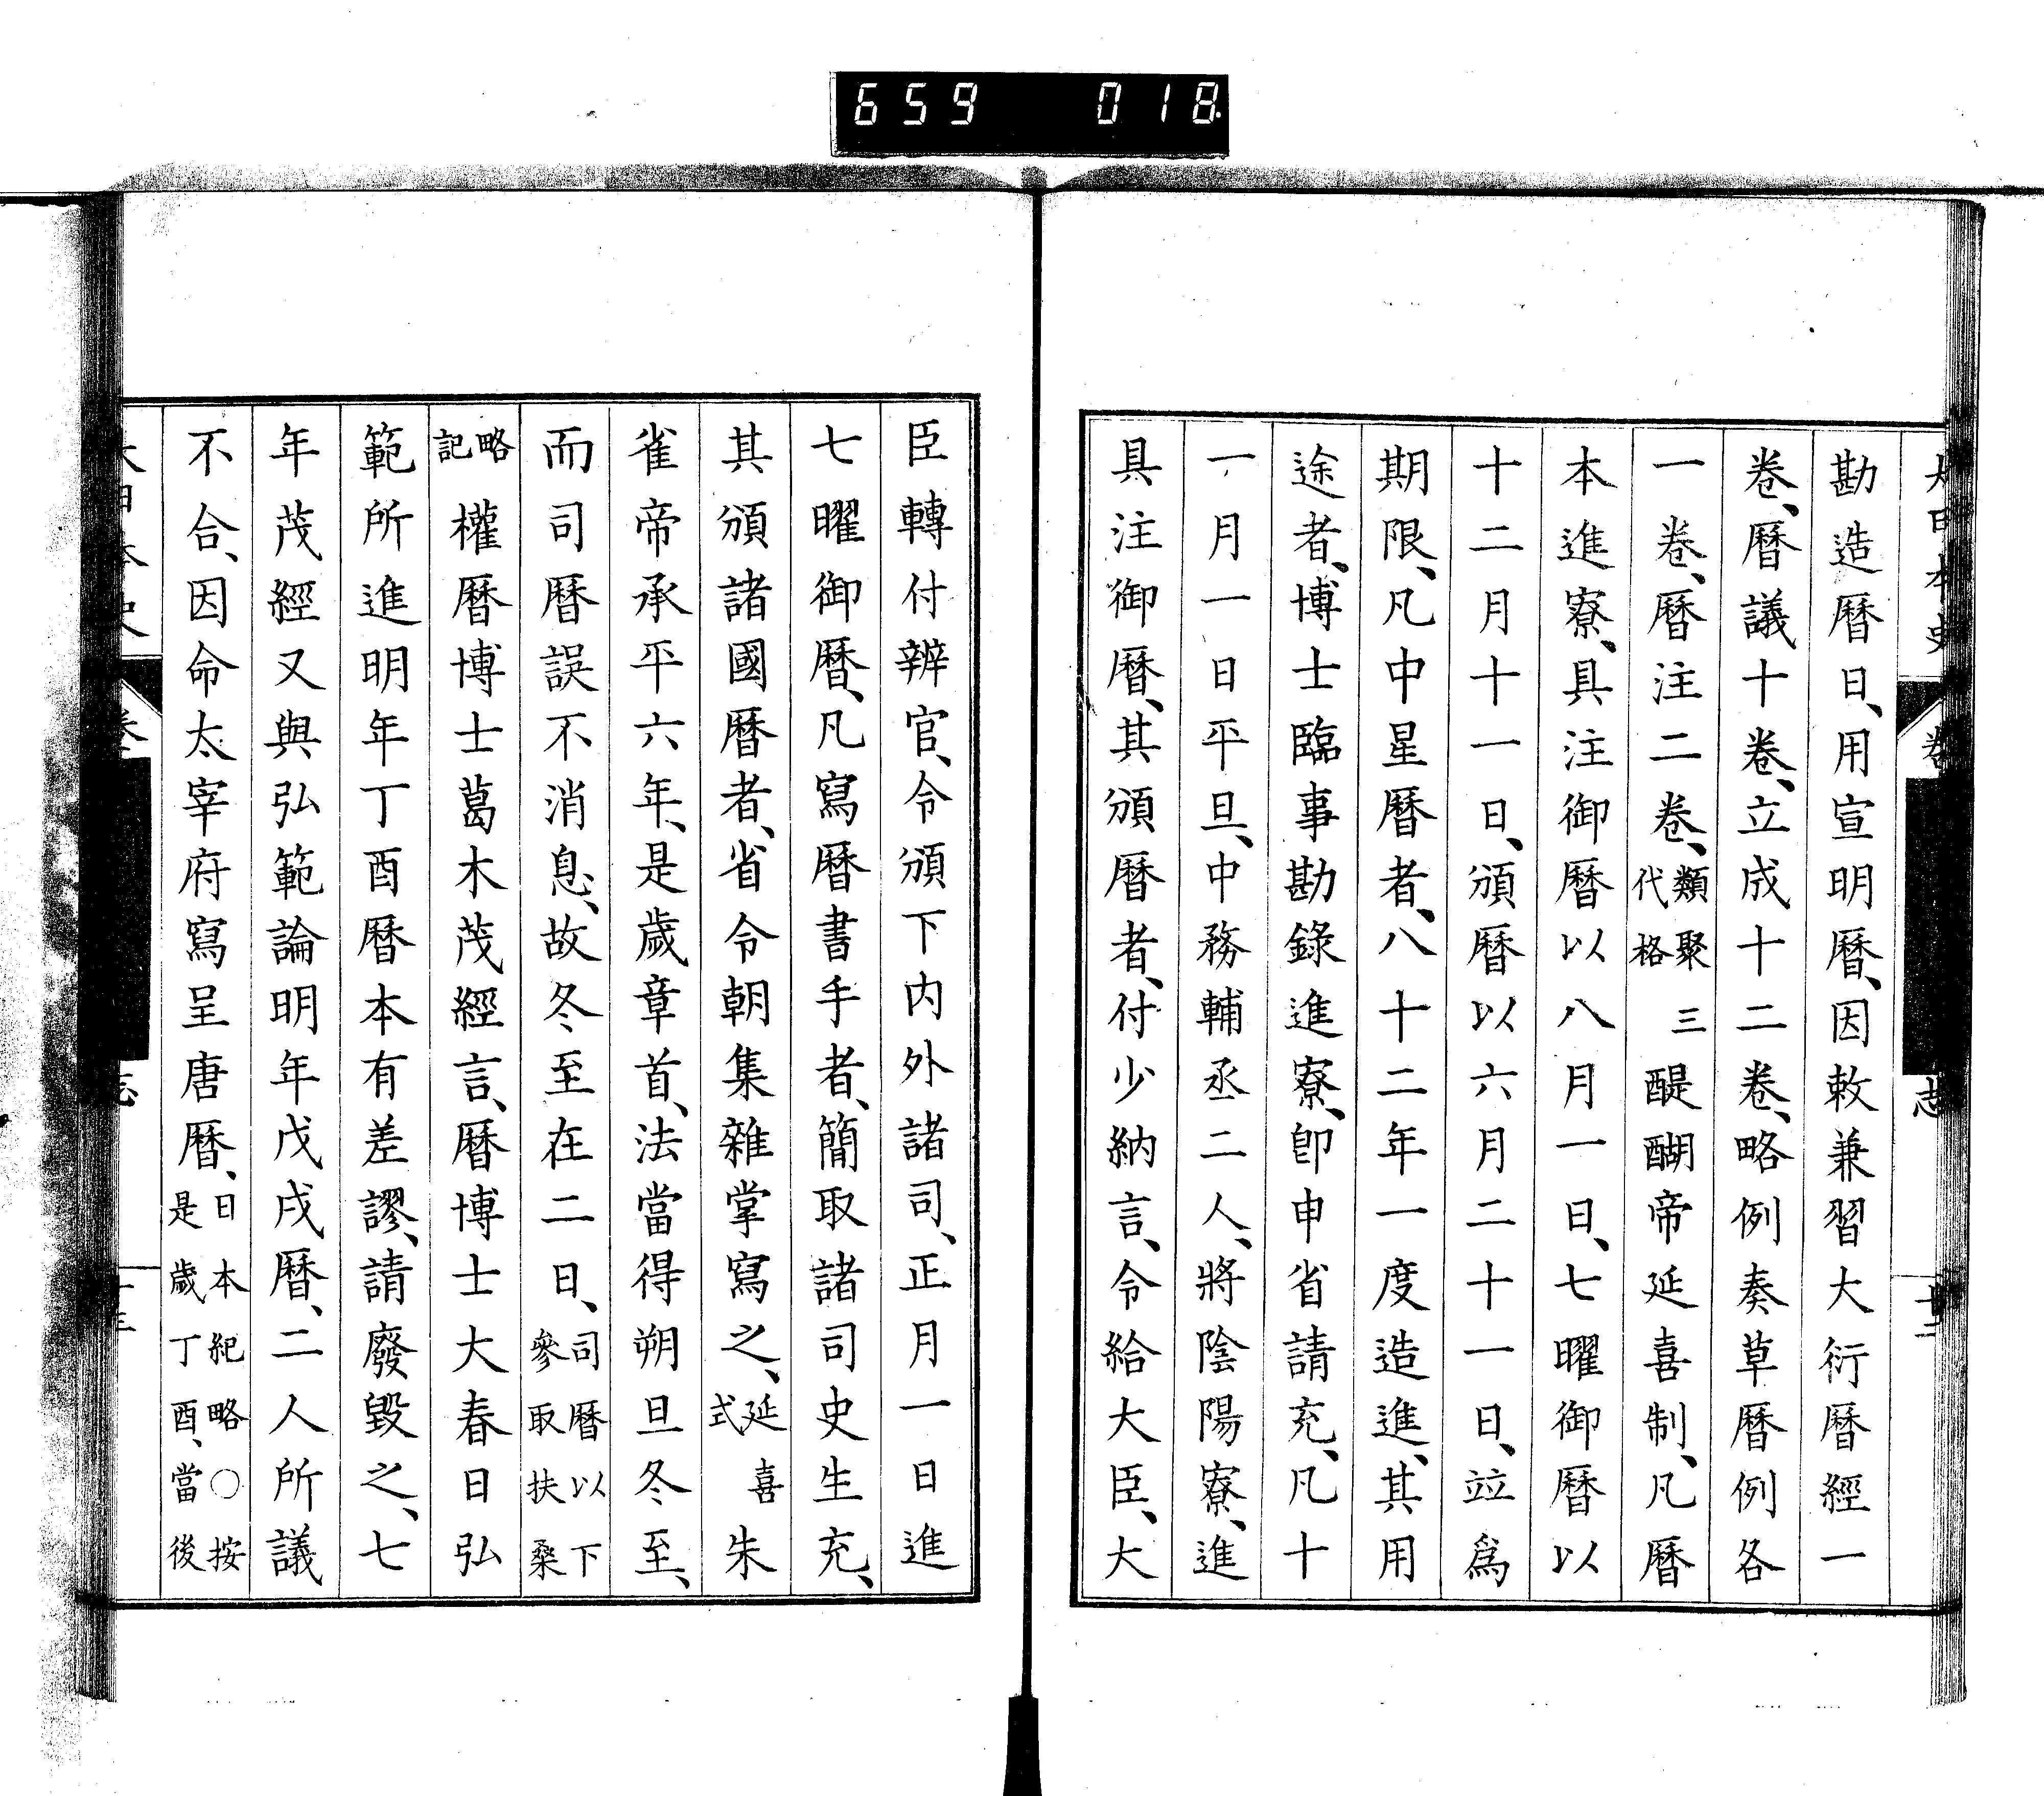 659 018
大日本史 卷 志 十二
勘造曆日、用宣明曆、因敕兼習大衍曆經一
卷、曆議十卷、立成十二卷、略例奏草曆例各
一卷、曆注二卷、類聚三代格 醍醐帝延喜制、凡曆
本進寮、具注御曆以八月一日、七曜御曆以
十二月十一日、頒曆以六月二十一日、竝爲
期限、凡中星曆者、八十二年一度造進、其用
途者、博士臨事勘錄進寮、卽申省請充、凡十
一月一日平旦、中務輔丞二人、將陰陽寮、進
具注御曆、其頒曆者、付少納言、令給大臣、大
臣轉付辨官、令頒下內外諸司、正月一日進
七曜御曆、凡寫曆書手者、簡取諸司史生充、
其頒諸國曆者、省令朝集雜掌寫之、延喜式 朱
雀帝承平六年、是歲章首、法當得朔旦冬至、
而司曆誤不消息、故冬至在二日、司曆以下參取扶桑
略記 權曆博士葛木茂經言、曆博士大春日弘
範所進明年丁酉曆本有差謬、請廢毀之、七
年茂經又與弘範論明年戊戌曆、二人所議
不合、因命太宰府寫呈唐曆、日本紀略○按是歲丁酉、當後
大日本史 卷 志 十三